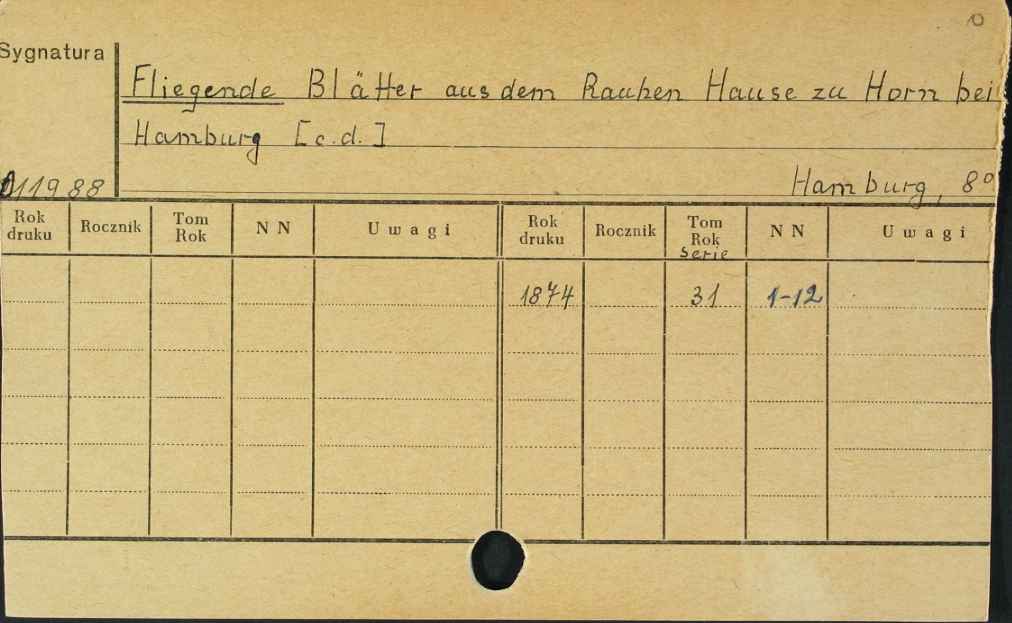 Sygnatura
Fliegende Blätter aus dem Rauhen Hause zu Horn bei
Hamburg [c.d.]
Hamburg, 8°
011988
Rok druku Rocznik Tom Rok N N Uwagi Rok druku Rocznik Tom Rok serie N N Uwagi
1874 31 1-12